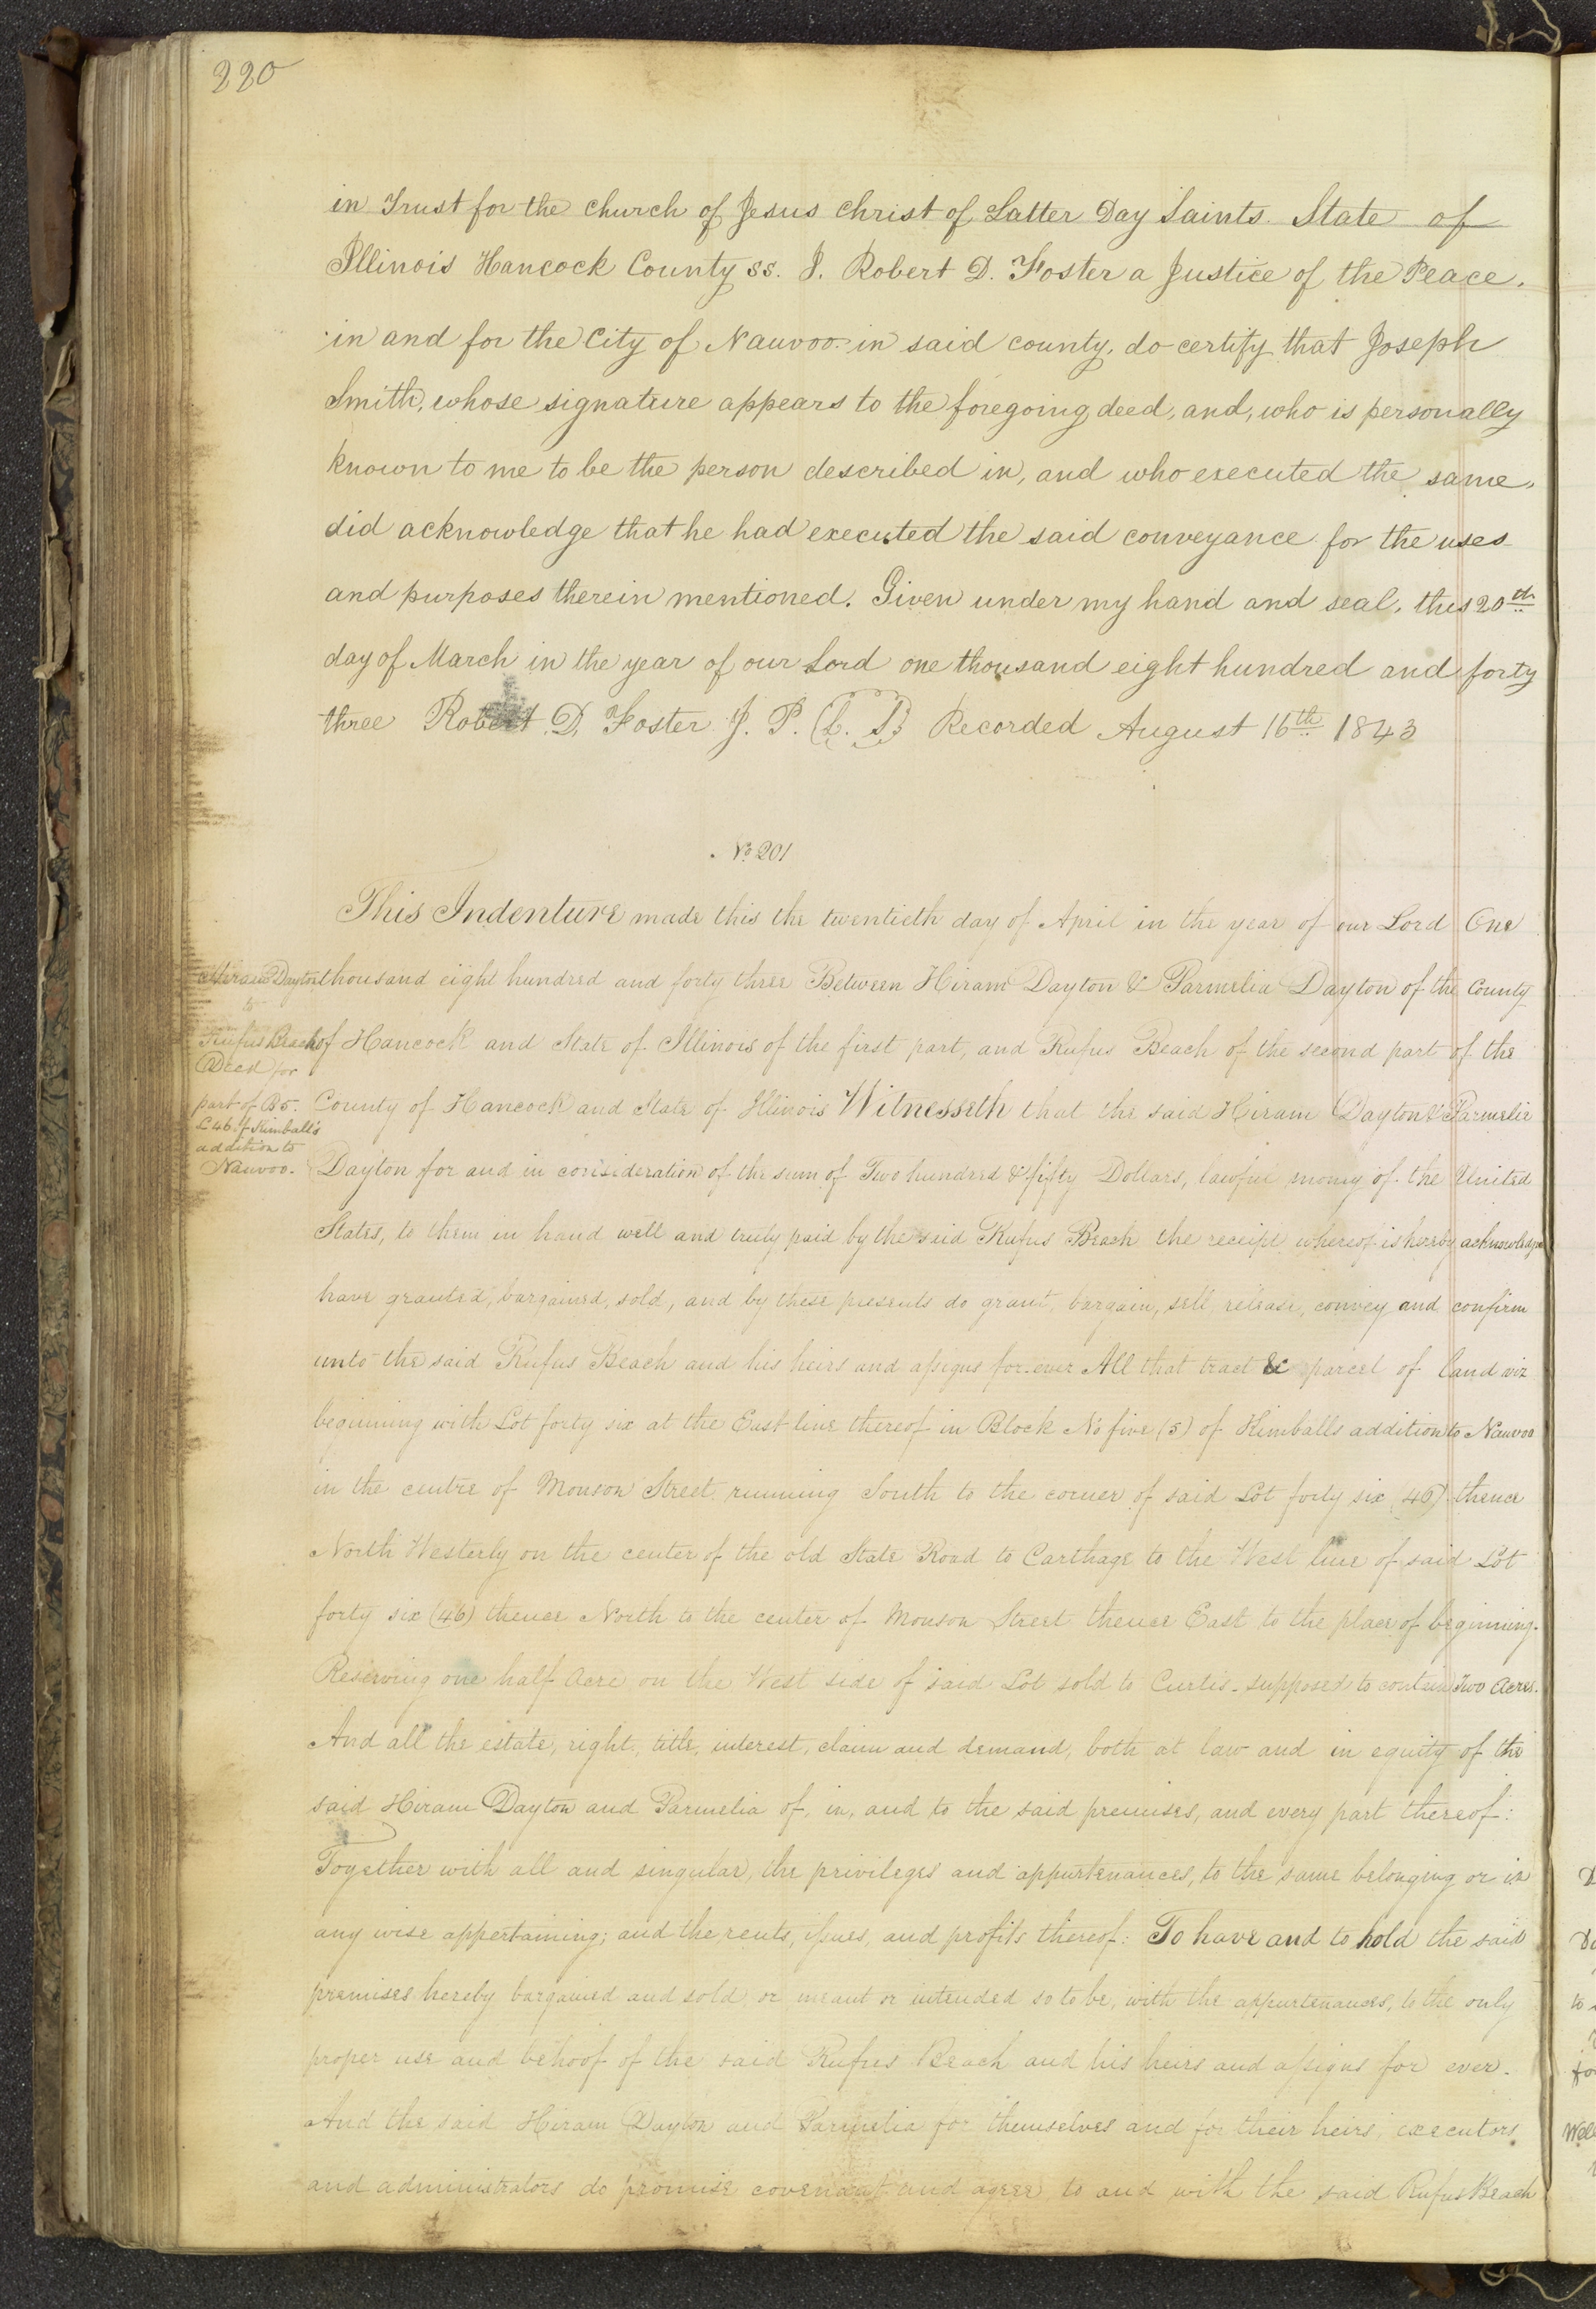 220
in Trust for the church of Jesus christ of Latter Day Saints. State of
Illinois Hancock County ss. I. Robert D. Foster a Justice of the Peace,
in and for the City of Nauvoo in said county, do certify that Joseph
Smith, whose signature appears to the foregoing deed, and, who is personally
known to me to be the person described in, and who executed the same,
did acknowledge that he had executed the said conveyance for the uses
and purposes therein mentioned. Given under my hand and seal, this 20th
day of March in the year of our Lord one thousand eight hundred and forty
three Robert D, Foster J. P. (L. S) Recorded August 16th 1843
No 201
This Indenture made this the twentieth day of April in the year of our Lord One
thousand eight hundred and forty three Between Hiram Dayton & Parmelia Dayton of the County
of Hancock and State of Illinois of the first part, and Rufus Beach of the second part of the
County of Hancock and State of Illinois Witnesseth that the said Hiram Dayton & Parmelia
Dayton for and in consideration of the sum of Two hundred & fifty Dollars, lawful money of the United
States, to them in hand well and truly paid by the said Rufus Beach the receipt whereof is hereby acknowledged
have granted, bargained, sold, and by these presents do grant, bargain, sell, release, convey and confirm
unto the said Rufus Beach and his heirs and assigns for-ever All that tract & parcel of land viz
beginning with Lot forty six at the East line thereof in Block No five (5) of Kimballs addition to Nauvoo
in the centre of Monson Street running South to the corner of said Lot forty six (46) thence
North Westerly on the center of the old State Road to Carthage to the West line of said Lot
forty six (46) thence North to the center of Monson Street thence East to the place of beginning.
Reserving one half Acre on the West side of said Lot sold to Curtis - supposed to contain Two Acres.
And all the estate, right, title, interest, claim and demand, both at law and in equity of the
said Hiram Dayton and Parmelia of, in, and to the said premises, and every part thereof:
Together with all and singular, the privileges and appurtenances, to the same belonging or in
any wise appertaining; and the rents, issues, and profits thereof: To have and to hold the said
premises hereby bargained and sold or meant or intended so to be, with the appurtenances, to the only
proper use and behoof of the said Rufus Beach and his heirs and assigns for ever.
And the said Hiram Dayton and Parmelia for themselves and for their heirs, executors
and administrators do promise covenant and agree to and with the said Rufus Beach
Hiram Dayton
to
Rufus Beach
Deed for
part of B5.
L 46 of Kimball's
addition to
Nauvoo.